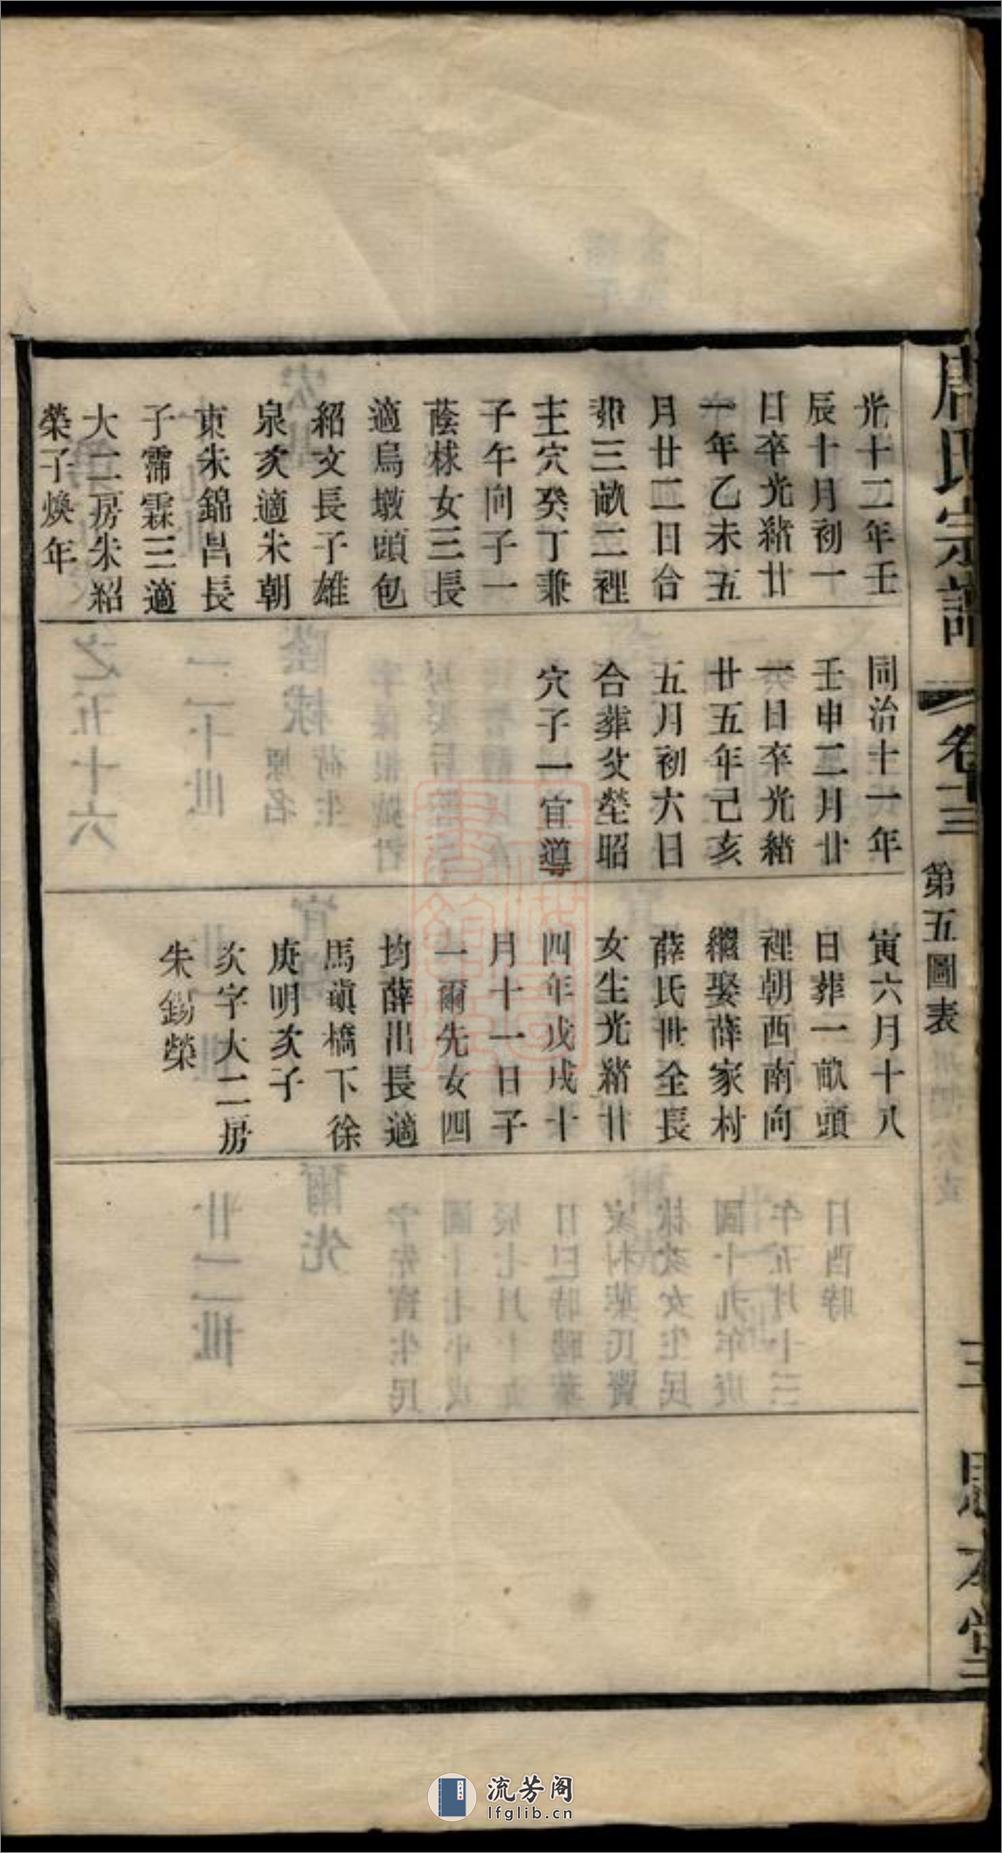 光十二年壬
辰十月初一
日卒光緒廿
一年乙未五
月廿二日合
葬三畝二裡
主穴癸丁兼
子午向子一
蔭梂女三長
適烏墩頭包
紹文長子雄
泉次適朱朝
東朱錦昌長
子霈霖三適
大二房朱紹
榮子煥年
同治十一年
壬申二月廿
一日卒光緒
廿五年己亥
五月初六日
合葬父塋昭
穴子一宜導
寅六月十八
日葬一畝頭
裡朝酉南向
繼娶薛家村
薛氏世全長
女生光緒廿
四年戊戌十
月十一日子
一爾先女四
均薛出長適
馬嵮橋下徐
庚明次子
次字大二房
朱錫榮
宗譜
卷十三
第五圖表
思本堂
流芳阁
lfglib.cn